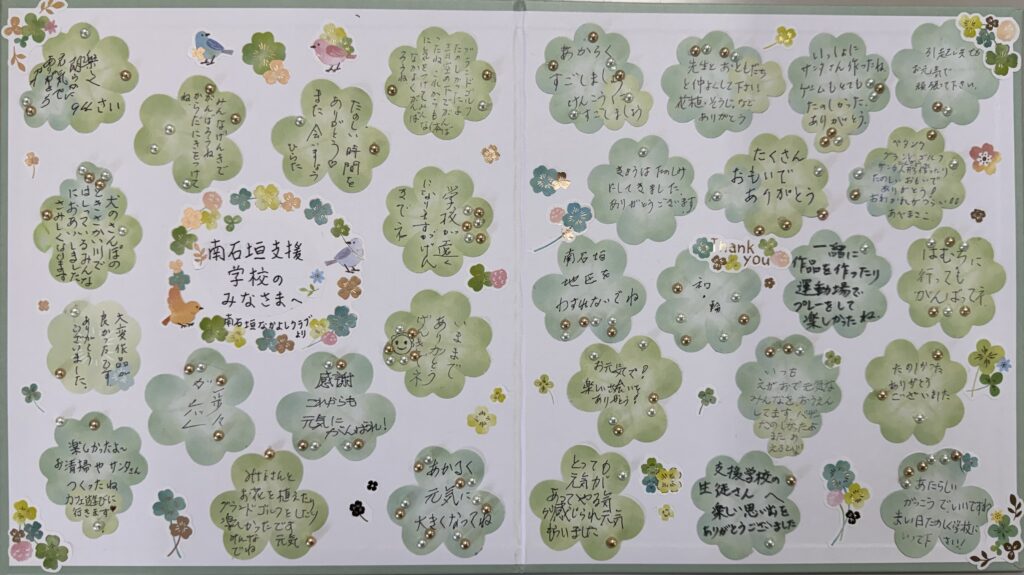 楽しく
朗らかに
元気で
94さい
みんなげんきで
がんばろうね
からだにきをつけて
ね
たのしい時間を
ありがとう
また会いましょう
ひらた
グランドゴルフ
犬のさんぽの
ときさかいりで
はしっているみんな
におあいしました
さみしくなります
南石垣支援
学校の
みなさまへ
南石垣なかよしクラブ
より
学校が遠
になりますがげん
きでネ
大変作品が
良かったです
ありがとう
ございました。
一歩々々
感謝
これからも
元気に
がんばれ!
いままで
ありがとう
げんきでネ
楽しかったよ〜
お清掃やサンタさん
つくったね
カフェ遊びに
行きます
みなさんと
お花を植えたり
グランドゴルフをしたり
楽しかったです
みんな元気
でね
あかるく
元気に
大きくなってね
あかるく
すごしましょう
げんこうに
すごしましょう
先生とおともだち
と仲よくして下さい
花植・そうじ、など
ありがとう
いっしょに
サンタさん作ったね
ゲームもしたしね
たのしかった。
ありがとう。
引越しまでも
お元気で
頑張って下さい。
きょうはたのしみ
にしてきました。
ありがとうございます!
たくさん
おもいで
ありがとう
グランドゴルフ
サンタ人形作ったり
たのしいおもいで
ありがとう!
おわかれがつらい!!
あやまここ
南石垣
地区を
わすれないでね
Thank
you
和・輪
一緒に
作品を作ったり
運動場で
プレーをして
楽しかったね
はむちに
行っても
がんばってネ
お元気で!
楽しい出会い
ありがとう!
いつも
えがおで元気な
みんなをおうえん
してます
たのしかったよ
また
あえるといい
たのしかった
ありがとう
ございました
とっても
元気が
あってやる気
が感じられ元気
もらいました
支援学校の
生徒さんへ
楽しい思い出を
ありがとうございました
あたらしい
がっこうでいいですね
まい日たのしく学校に
いって下さい!